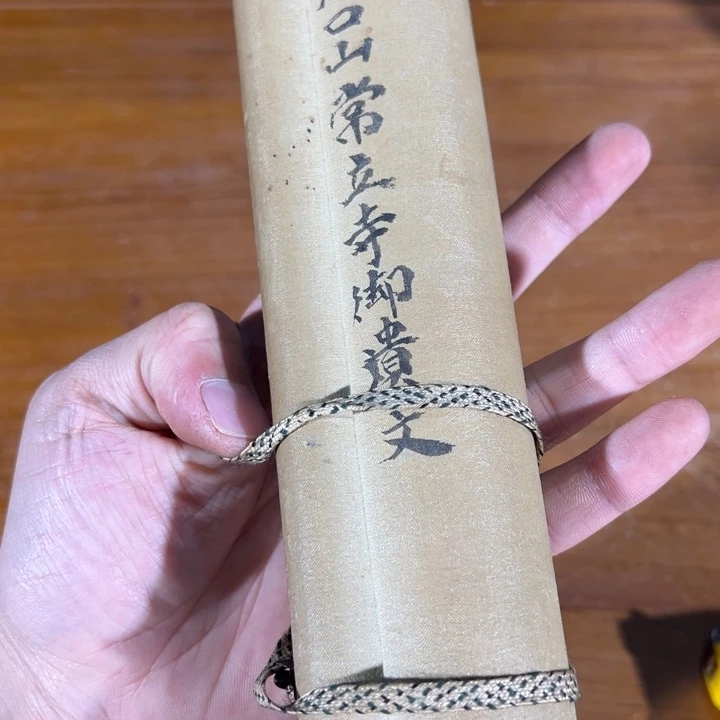 口山常立寺御遺文